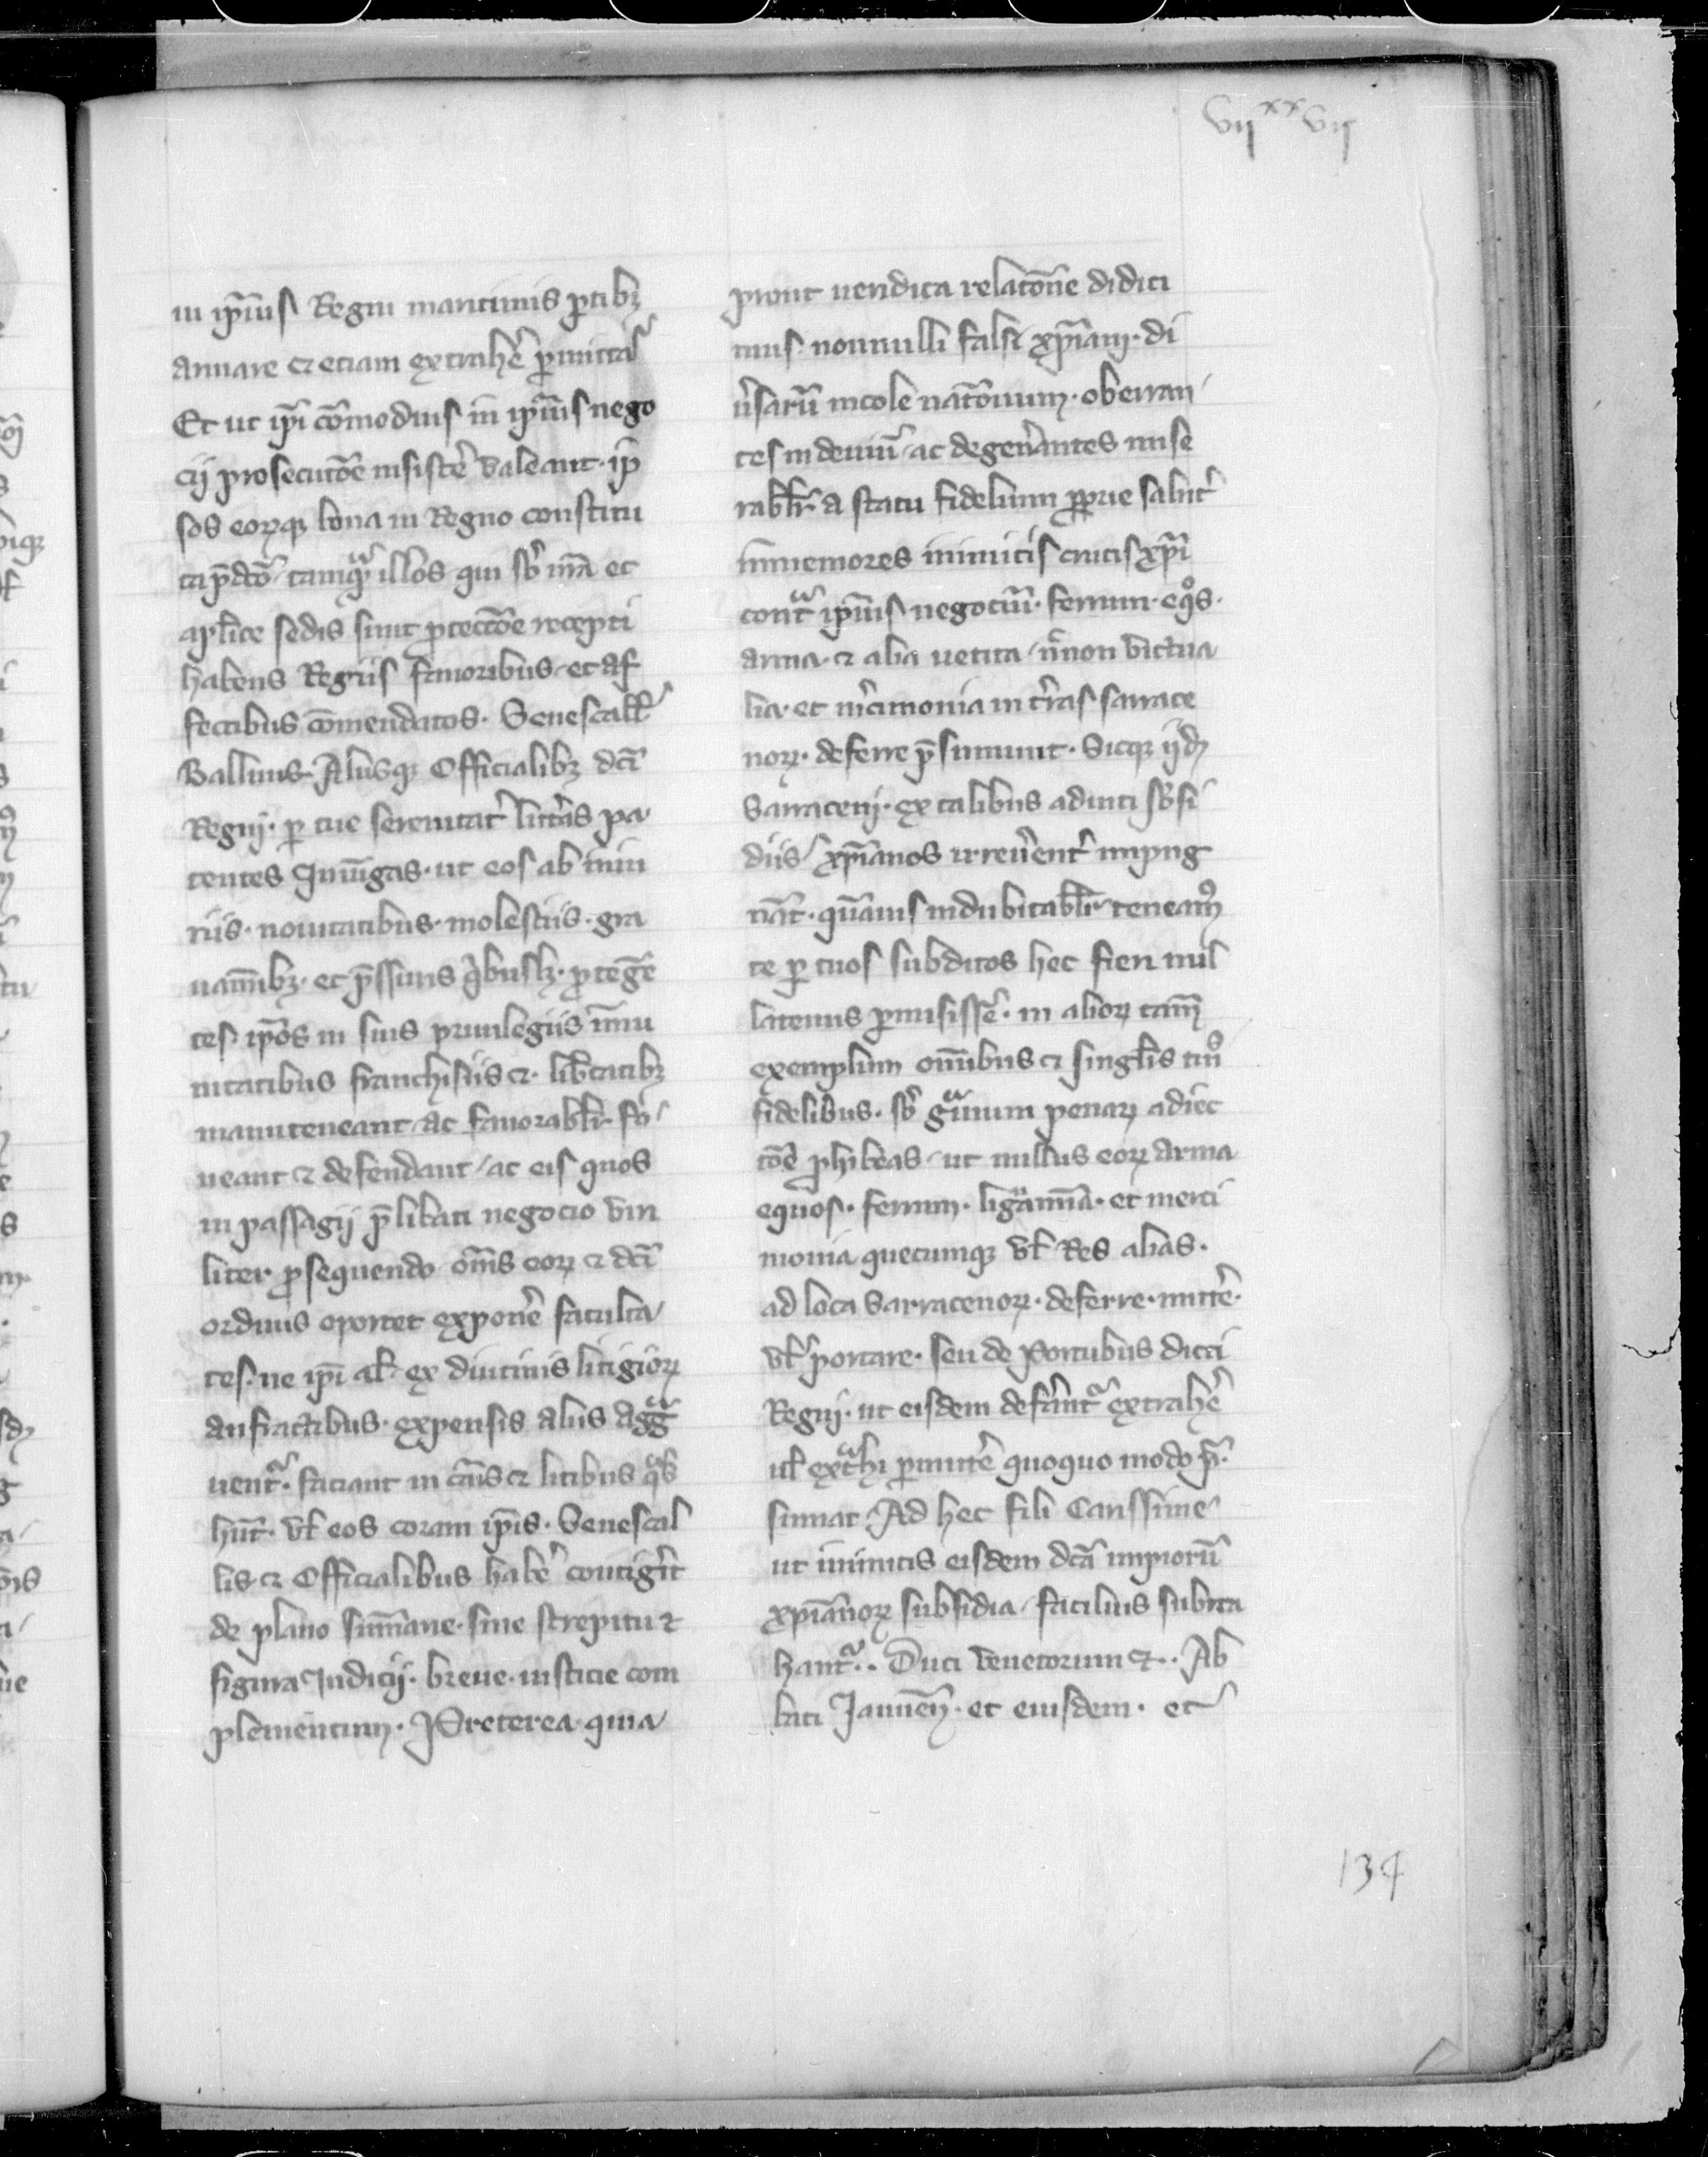 vijxxvij
in ip̄ius Regni maritimis ꝑtibꝫ
armare et etiam extrahe᷑ ꝑmittas
Et ut ip̄i cōmodius in ip̄ius nego
cij prosecutōe insiste᷑ valeant. ip̄
sos eorꝫqꝫ bona in Regno constitu
ta p̄dc̄o tamqᷓ illos qui sb᷑ nr̄a et
aplice sedis sunt ꝓtectōe recepti
habens Regiis fauoribus et af
fectibus cōmendatos. Senescall᷑
Balliuis Aliisqꝫ Officialibꝫ dc̄i
Regnj. ꝑ tue serenitat᷑ litt᷑as pa
tentes Iniūgas. ut eos ab iniu
riis. nouitatibus. molestiis. gra
uam̄ibꝫ. et p̄ssuris q̇buslꝫ. ꝓtegē
tes ip̄os in suis priuilegiis im̄u
nitatibus franchisiis et. lib᷑tatibꝫ
manuteneant ac fauorabłr fo
ueant et defendant ac eis quos
in passagij p̄libati negocio viri
liter ꝓsequendo om̄s eorꝫ et dc̄i
ordinis oportet expone᷑ faculta
tes. ne ip̄i al᷑ ex diutinis litigiorꝫ
anfractibus. expensis aliis aggᷓ
uent᷑. faciant in cāis et litibus qᷓs
hūt. vł eos coram ip̄is. Senescal
lis et Officialibus habe᷑ contig᷑it
de plano sum̄arie. sine strepitu et
figura Judicij. breue. iusticie com
plementum. Preterea quia
prout ueridica relatōne didici
mus. nonnulli falsi xp̄iani. di
u᷑sarū incole natōnum. oberran
tes in deuiū ac degen᷑antes mise
rabłr. a statu fidelium ꝓprie salut᷑
immemores inimicis crucis xp̄i
contᷓ ip̄ius negotiū. ferrum. eqͦs.
arma. et alia uetita n̄non victua
lia. et m᷑cimonia in t᷑ras sarrace
norꝫ. deferre p̄sumunt. Sicqꝫ ijdꝫ
Sarraceni. ex talibus adiuti sb᷑si
diis xp̄ianos irreu᷑ent᷑ impug
nāt. quāuis indubitabłr teneamꝰ
te ꝑ tuos subditos hec fieri nul
latenus ꝑmisisse᷑. in aliorꝫ tam̄
exemplum om̄ibus et singłis tuis
fidelibus. sb᷑ gᷓuium penarꝫ adiec
tōe ꝓhibeas. ut nullus eorꝫ arma
equos. ferrum. ligᷓmīa. et merci
monia quecumqꝫ vł Res alias.
ad loca Sarracenorꝫ. deferre. mitte᷑.
vł portare. seu de Portubus dicti
Regnj. ut eisdem def᷑ant᷑ extrahe᷑
uł exᷓthi ꝑmitte᷑ quoquo modo p᷑.
sumat. Ad hec fili Carissime
ut inimicis eisdem dc̄a impiorū
xp̄ianorꝫ subsidia facilius subtra
hant᷑.. Duci Venetorum et.. Ab
bati Januen̄. et eiusdem. et
134